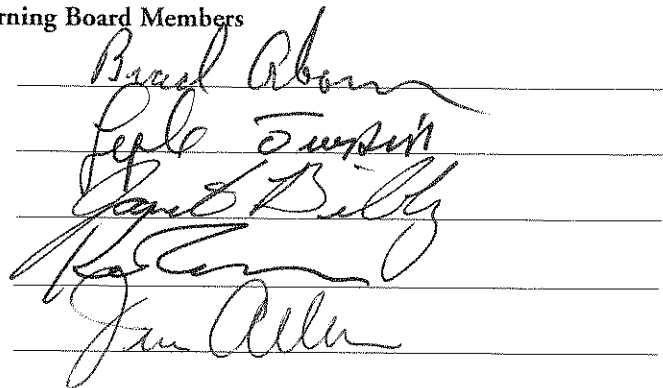 rning Board Members
Brad
Lyle Turpin
Janet Bilby
Jim Allen